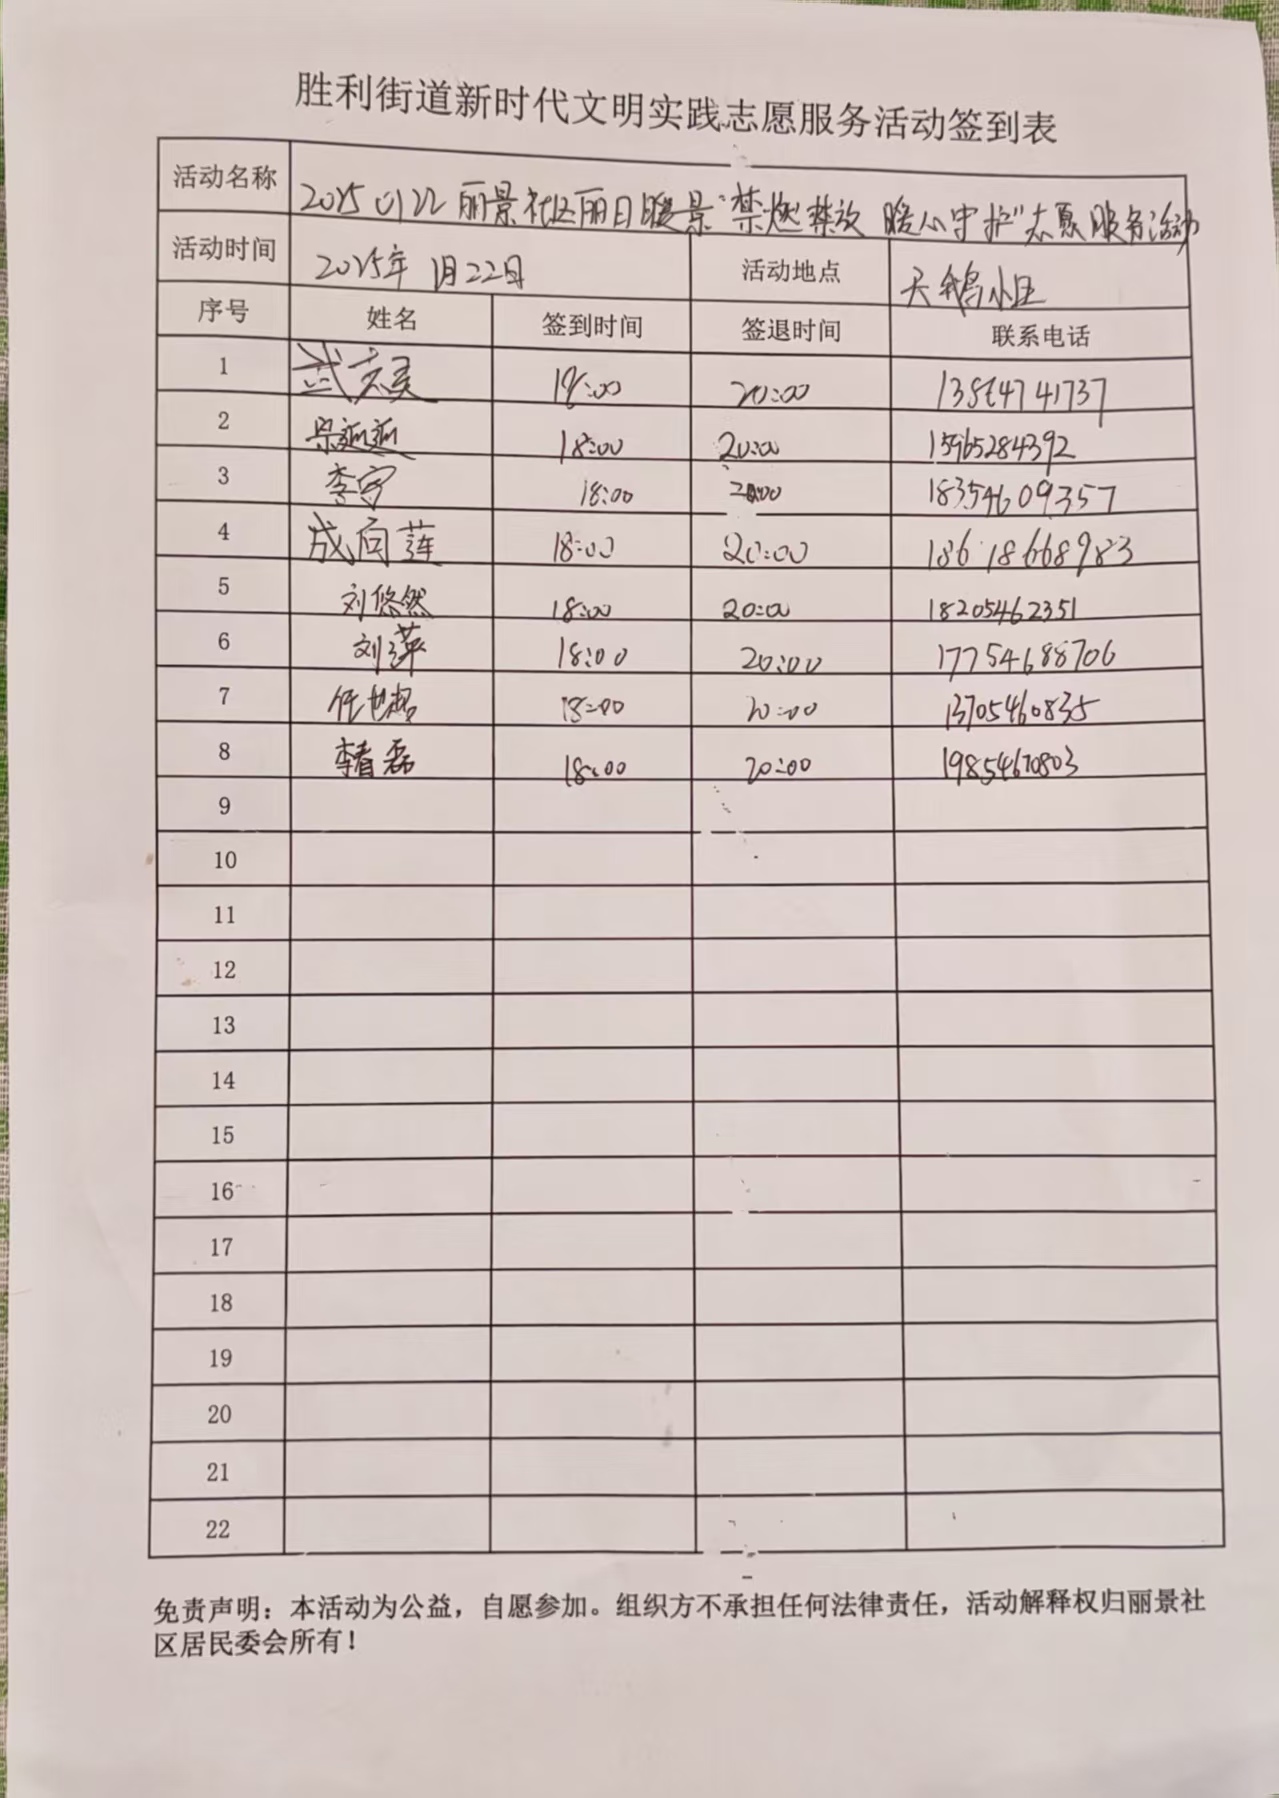 胜利街道新时代文明实践志愿服务活动签到表
活动名称 2025 0122 丽景社区丽日暖景"禁燃禁放 暖心守护"志愿服务活动
活动时间 2025年 1月22日 活动地点 天鹅小区
序号 姓名 签到时间 签退时间 联系电话
1 武 18:00 20:00
2 18:00 20:00 15965284392
3 李守 18:00 20:00 18354609357
4 成向莲 18:00 20:00 18618668983
5 刘悠然 18:00 20:00 18205462351
6 刘萍 18:00 20:00 17754688706
7 任世超 18:00 20:00 13705460835
8 李春磊 18:00 20:00 19854670803
9
10
11
12
13
14
15
16
17
18
19
20
21
22
免责声明：本活动为公益，自愿参加。组织方不承担任何法律责任，活动解释权归丽景社
区居民委会所有！